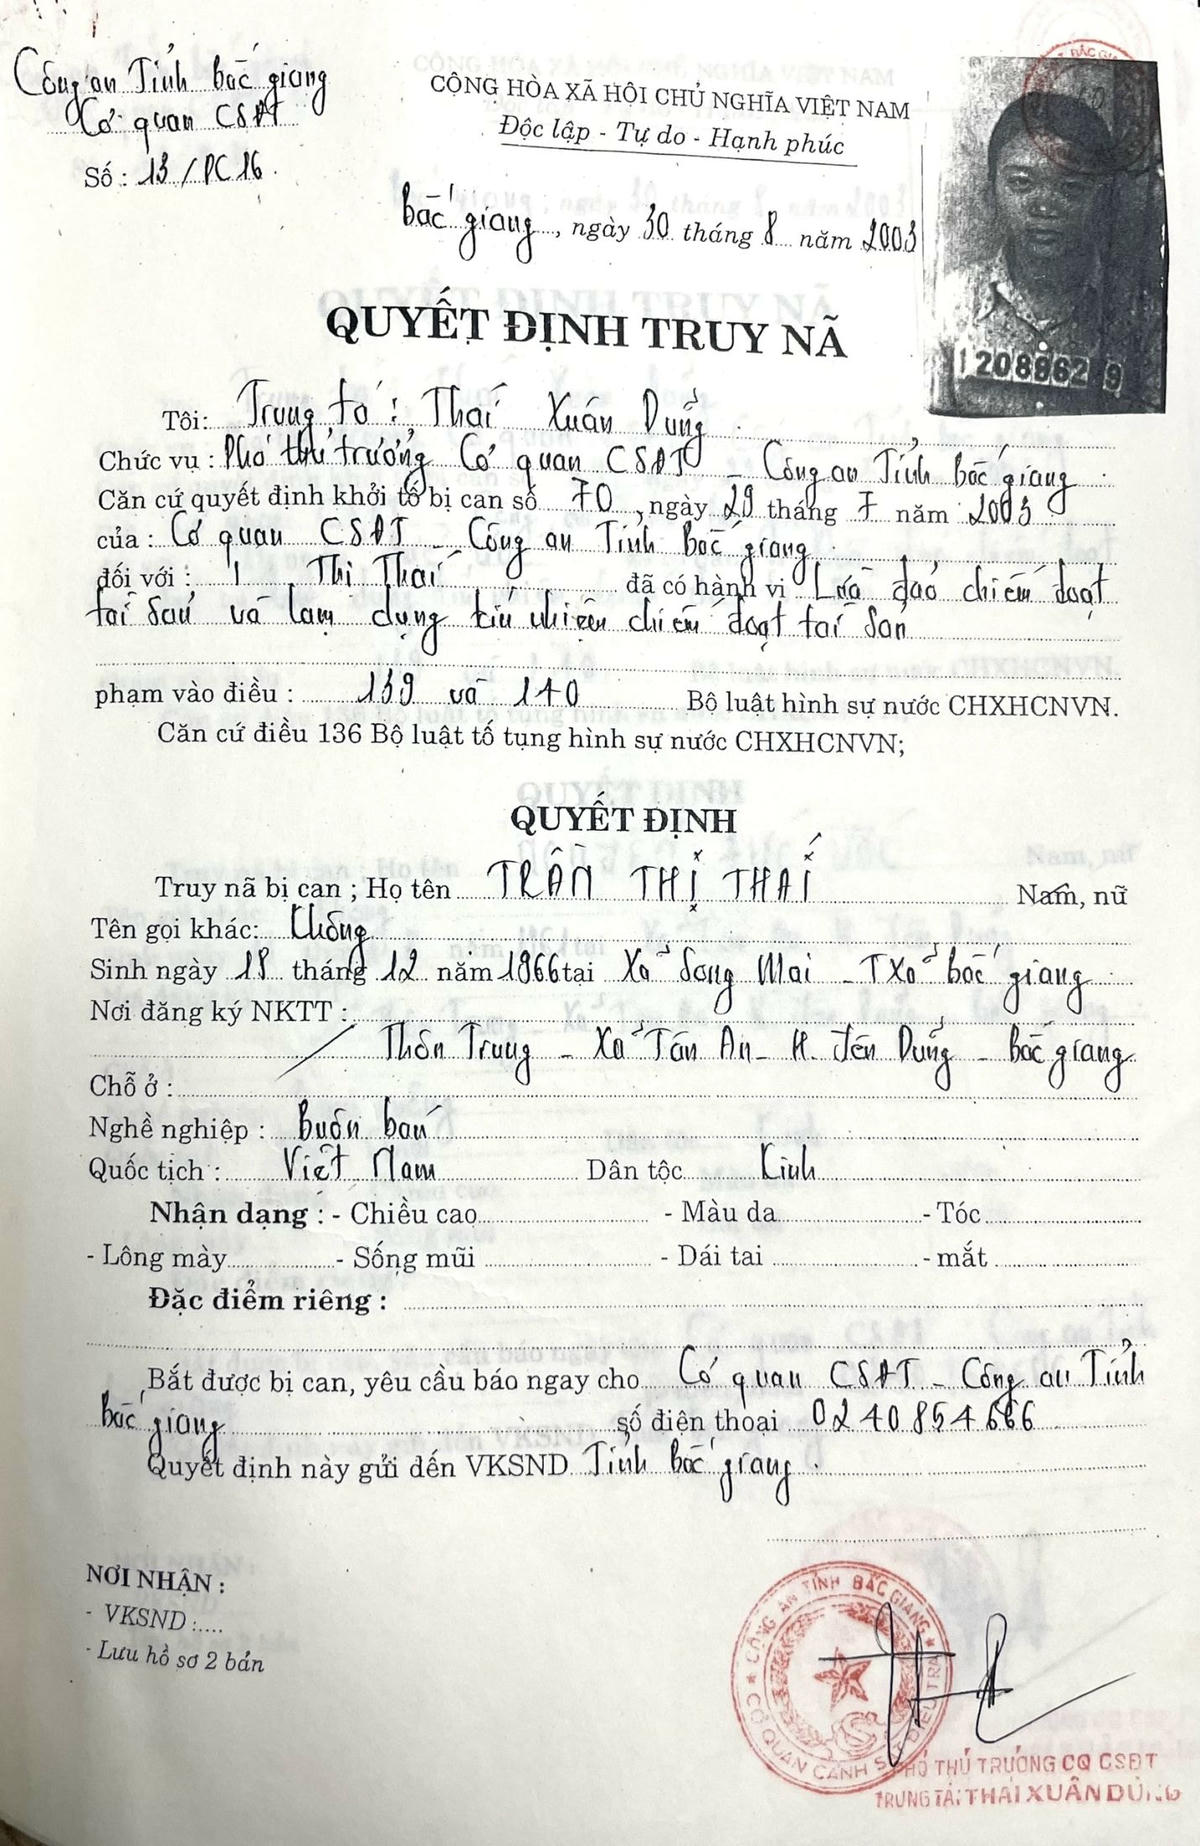 Công an Tỉnh bắc giang
Cơ quan CSĐT
Số : 13 / PC16.
CỘNG HÒA XÃ HỘI CHỦ NGHĨA VIỆT NAM
Độc lập - Tự do - Hạnh phúc
bắc giang, ngày 30 tháng 8 năm 2003
12088629
QUYẾT ĐỊNH TRUY NÃ
Tôi: Trung tá : Thái Xuân Dũng
Chức vụ : Phó thủ trưởng Cơ quan CSĐT - Công an Tỉnh bắc giang
Căn cứ quyết định khởi tố bị can số 70, ngày 29 tháng 7 năm 2003
của : Cơ quan CSĐT - Công an Tỉnh bắc giang
đối với : Thị Thái đã có hành vi Lừa đảo chiếm đoạt
tài sản và lạm dụng tín nhiệm chiếm đoạt tài sản
phạm vào điều : 139 và 140 Bộ luật hình sự nước CHXHCNVN.
Căn cứ điều 136 Bộ luật tố tụng hình sự nước CHXHCNVN;
QUYẾT ĐỊNH
Truy nã bị can ; Họ tên TRẦN THỊ THÁI Nam, nữ
Tên gọi khác: Không
Sinh ngày 18 tháng 12 năm 1966 tại Xã Song Mai - TXã bắc giang
Nơi đăng ký NKTT :
Thôn Trung - Xã Tân An - H. Yên Dũng - Bắc giang
Chỗ ở :
Nghề nghiệp : Buôn bán
Quốc tịch : Việt Nam Dân tộc Kinh
Nhận dạng : - Chiều cao - Màu da - Tóc
- Lông mày - Sống mũi - Dái tai - mắt
Đặc điểm riêng :
Bắt được bị can, yêu cầu báo ngay cho Cơ quan CSĐT - Công an Tỉnh
bắc giang số điện thoại 0240854666
Quyết định này gửi đến VKSND Tỉnh bắc giang.
NƠI NHẬN :
- VKSND :....
- Lưu hồ sơ 2 bản
CÔNG AN TỈNH BẮC GIANG
CƠ QUAN CẢNH SÁT ĐIỀU TRA
PHÓ THỦ TRƯỞNG CQ CSĐT
TRUNG TÁ: THÁI XUÂN DŨNG